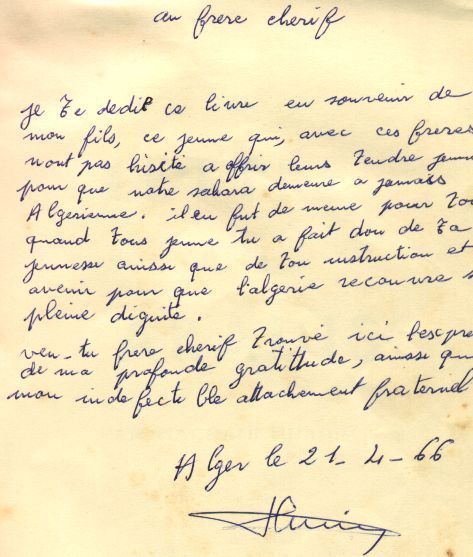 au frere cherif
je te dedie ce livre en souvenir de
mon fils, ce jeune qui, avec ces freres
n'ont pas hisité a offrir leurs tendre jeun
pour que notre sahara demeure a jamais
Algerienne. il en fut de meme pour toi
quand tous jeune tu a fait don de ta
jeunesse ainsse que de ton instruction et
avenir pour que l'algerie recouvre s
pleine dignite.
veu-tu frere cherif trouvé ici l'expre
de ma profonde gratittude, ainsse que
mon indefectible attachement fraternel
Alger le 21-4-66